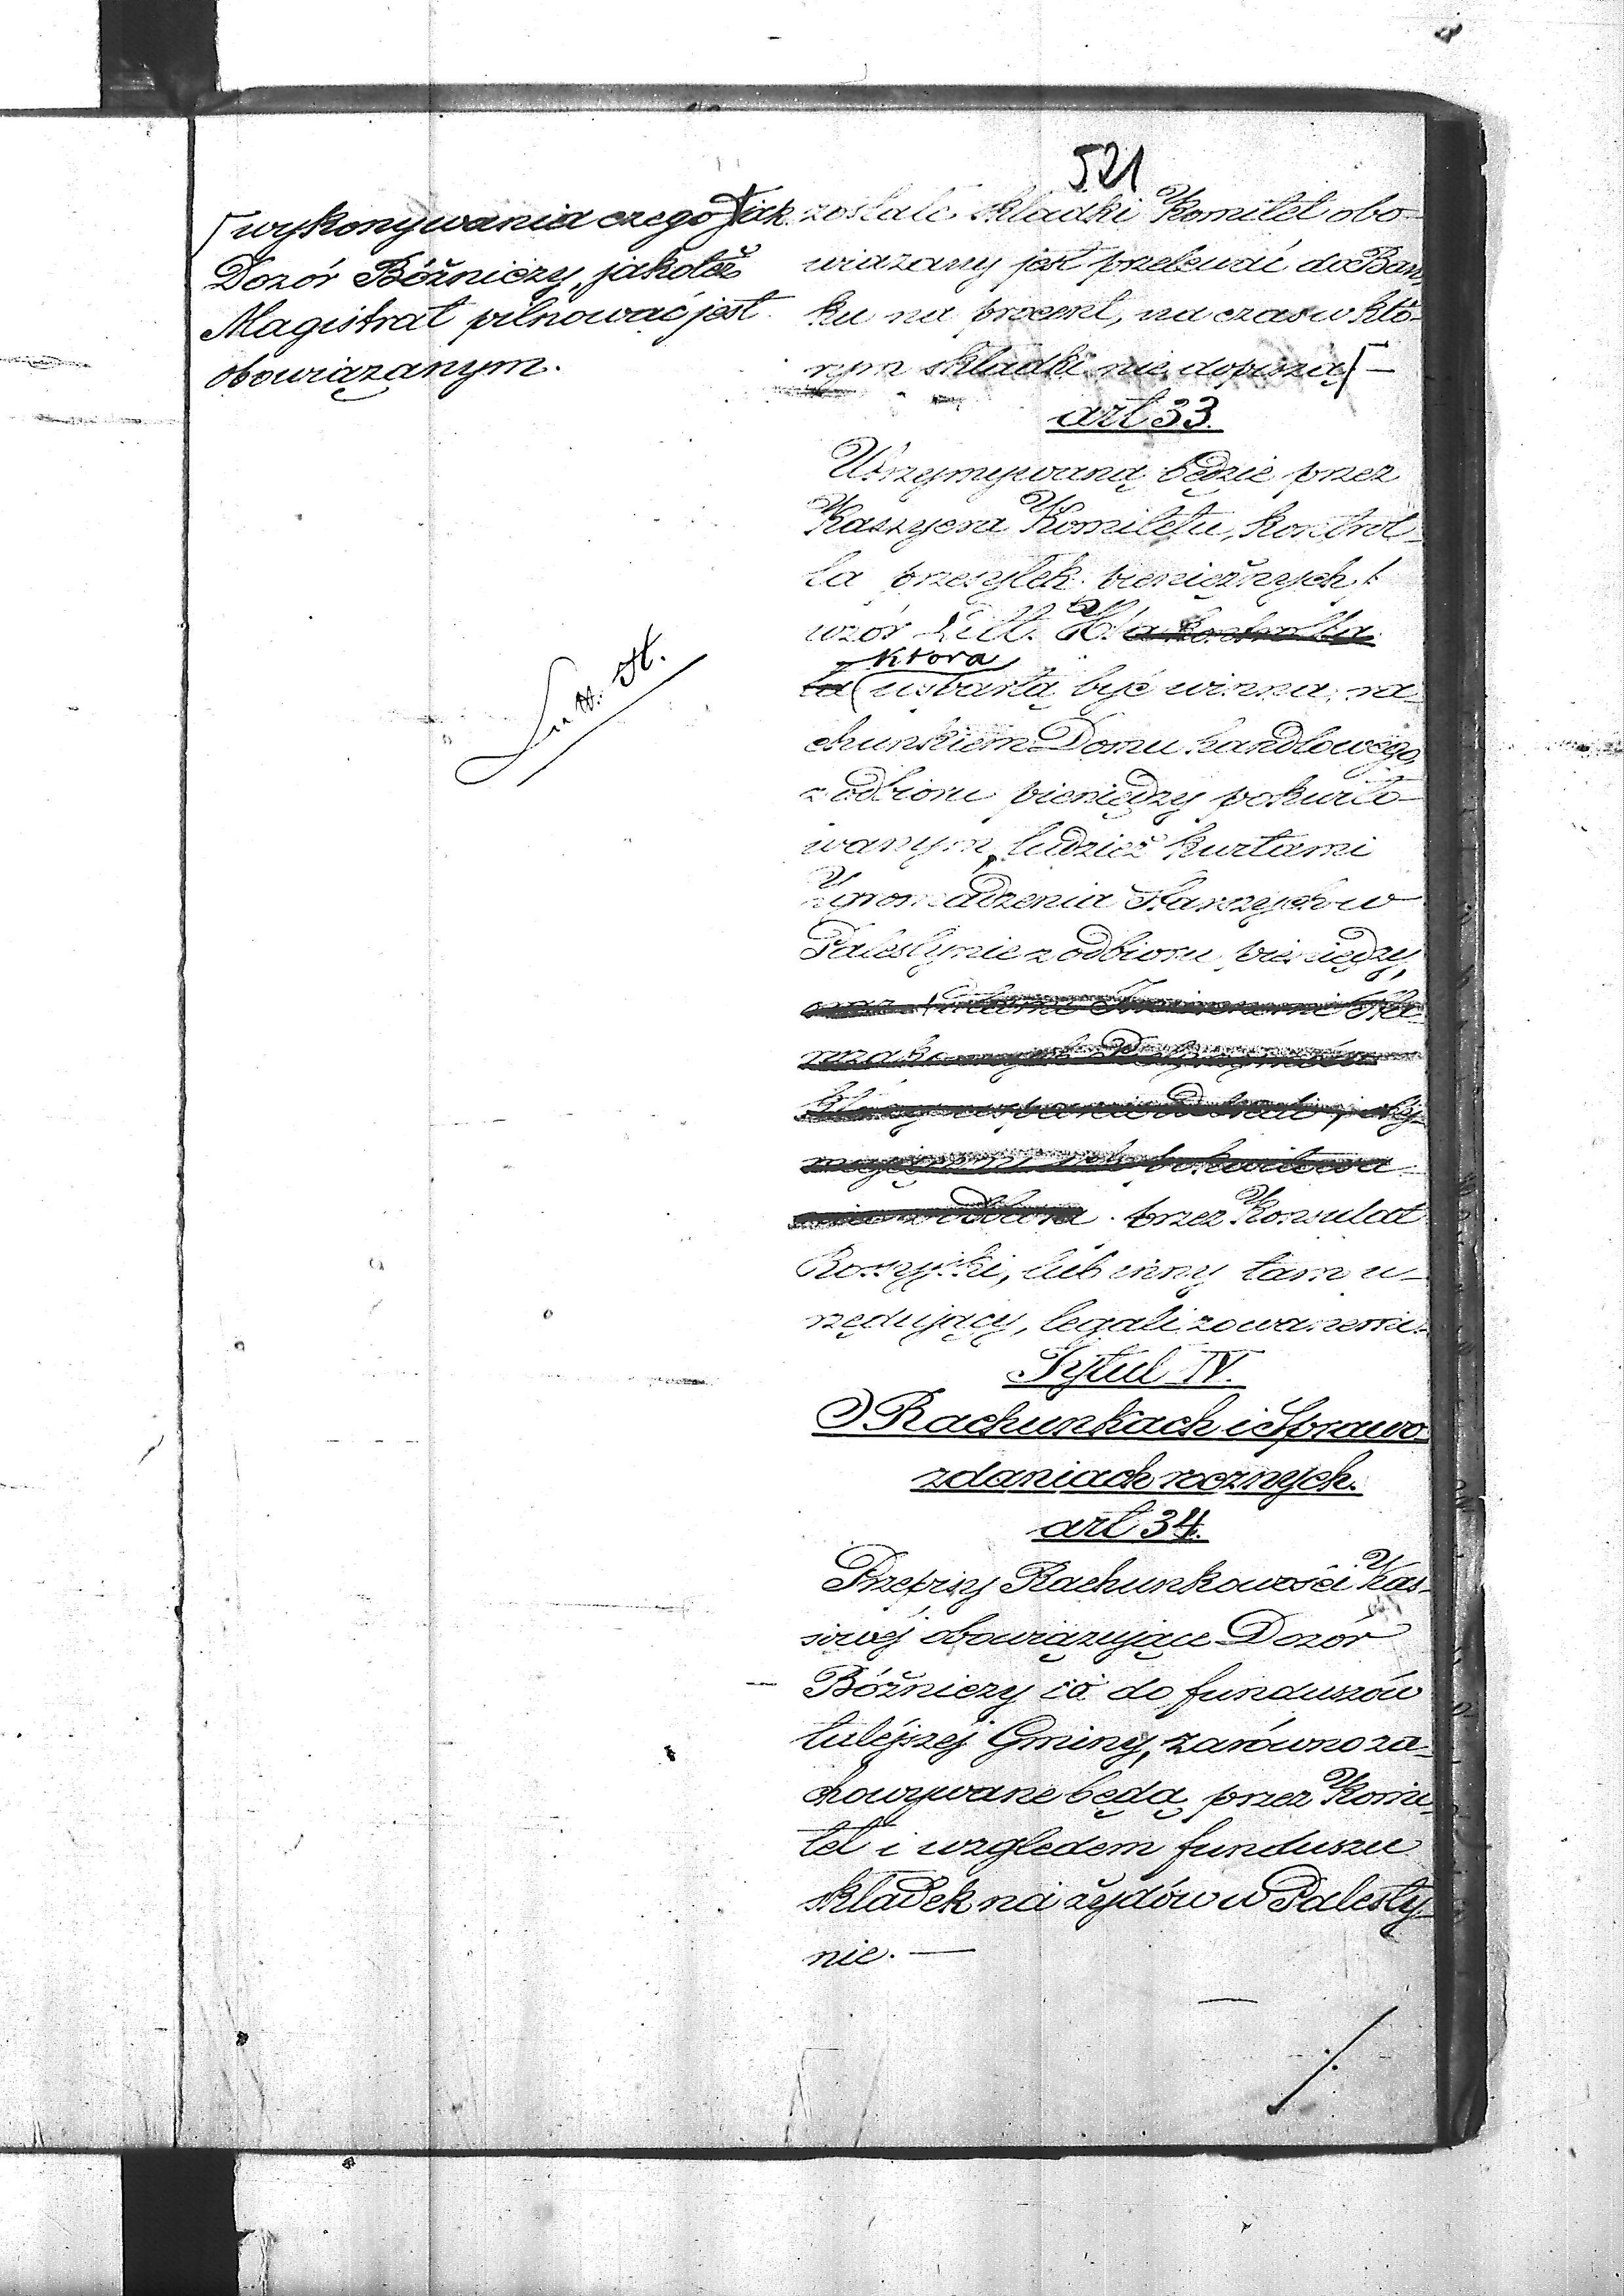 521
wykonywania czego jak
Dozór Bóżniczy, jakoteż
Magistrat pilnować jest
obowiązanym.
Litt. H.
zostałe składki Komitet obo-
wiązany jest przelewać do Ban-
ku na procent, na czas w któ-
rym składki nie dopiszą
art 33.
Utrzymywaną będzie przez
Kassyera Komitetu, kontrol-
la przesyłek pieniężnych /
wzór Litt. H. a kontrolla
która
ta wspartą być winna, ra-
chunkiem Domu handlowego,
z odbioru pieniędzy pokwito-
wanym, tudzież kwitami
Zgromadzenia Starszych w
Palestynie z odbioru pieniędzy,
przez Konsulat
Rossyjski, lub inny tam u-
rzędujący, legalizowanemi.
Tytuł IV.
O Rachunkach i Sprawo-
zdaniach rocznych.
art 34.
Przepisy Rachunkowości Kas-
sowéj obowiązujące Dozór
Bóżniczy co do funduszów
tutéjszéj Gminy, zarówno za-
chowywane będą przez Komi-
tet i względem funduszu
składek na żydów w Palesty-
nie. —